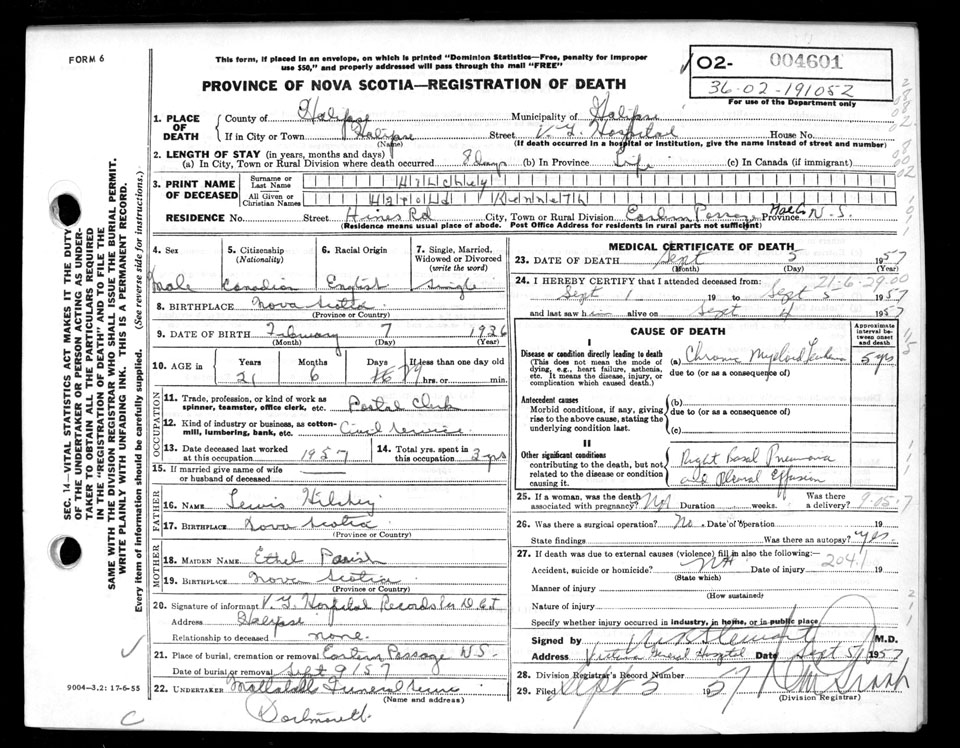 FORM 6
This form, if placed in an envelope, on which is printed "Dominion Statistics—Free, penalty for improper
use $50," and properly addressed will pass through the mail "FREE"
PROVINCE OF NOVA SCOTIA—REGISTRATION OF DEATH
02- 004601
36-02-191052
For use of the Department only
1. PLACE OF DEATH
County of Halifax Municipality of Halifax
If in City or Town Halifax Street V. G. Hospital House No.
(Name) (If death occurred in a hospital or institution, give the name instead of street and number)
2. LENGTH OF STAY (in years, months and days)
(a) In City, Town or Rural Division where death occurred 8 days (b) In Province Life (c) In Canada (if immigrant)
3. PRINT NAME OF DECEASED
Surname or Last Name Hilchey
All Given or Christian Names Harold Kenneth
RESIDENCE No. Street Hines Rd City, Town or Rural Division Eastern Passage Hfx Co Province N.S.
(Residence means usual place of abode. Post Office Address for residents in rural parts not sufficient)
4. Sex Male
5. Citizenship (Nationality) Canadian
6. Racial Origin English
7. Single, Married, Widowed or Divorced (write the word) Single
8. BIRTHPLACE Nova Scotia
(Province or Country)
9. DATE OF BIRTH February 7 1936
(Month) (Day) (Year)
10. AGE in Years 21 Months 6 Days 29 If less than one day old hrs. or min.
OCCUPATION
11. Trade, profession, or kind of work as spinner, teamster, office clerk, etc. Postal Clerk
12. Kind of industry or business, as cotton-mill, lumbering, bank, etc. Civil Service
13. Date deceased last worked at this occupation 1957
14. Total yrs. spent in this occupation 3 yrs
15. If married give name of wife or husband of deceased
FATHER
16. NAME Lewis Hilchey
17. BIRTHPLACE Nova Scotia
(Province or Country)
MOTHER
18. MAIDEN NAME Ethel Parish
19. BIRTHPLACE Nova Scotia
(Province or Country)
20. Signature of informant V. G. Hospital Records
Address Halifax
Relationship to deceased none.
21. Place of burial, cremation or removal Eastern Passage N.S.
Date of burial or removal Sept 9/57
22. UNDERTAKER Mattatall Funeral
(Name and address)
Dartmouth
9004—3.2: 17-6-55
MEDICAL CERTIFICATE OF DEATH
23. DATE OF DEATH Sept 5 1957
(Month) (Day) (Year)
21-6-29.00
24. I HEREBY CERTIFY that I attended deceased from:
Sept 1 19 to Sept 5 1957
and last saw him alive on Sept 4 1957
CAUSE OF DEATH
Approximate interval between onset and death
I
Disease or condition directly leading to death
(This does not mean the mode of dying, e.g., heart failure, asthenia, etc. It means the disease, injury, or complication which caused death.)
(a) Chronic Myeloid Leukemia 5 yrs
due to (or as a consequence of)
Antecedent causes
Morbid conditions, if any, giving rise to the above cause, stating the underlying condition last.
(b)
due to (or as a consequence of)
(c)
II
Other significant conditions
contributing to the death, but not related to the disease or condition causing it.
Right Basal Pneumonia
and Pleural Effusion
25. If a woman, was the death associated with pregnancy? NA Duration weeks. Was there a delivery?
26. Was there a surgical operation? No. Date of operation 19
State findings Was there an autopsy? yes
27. If death was due to external causes (violence) fill in also the following: 204.1
Accident, suicide or homicide? NA Date of injury 19
(State which)
Manner of injury
(How sustained)
Nature of injury
Specify whether injury occurred in industry, in home, or in public place
Signed by Stewart M.D.
Address Victoria General Hospital Date Sept 5/1957
28. Division Registrar's Record Number
29. Filed Sept 5 1957
(Division Registrar)
SEC. 14—VITAL STATISTICS ACT MAKES IT THE DUTY
OF THE UNDERTAKER OR PERSON ACTING AS UNDER-
TAKER TO OBTAIN ALL THE PARTICULARS REQUIRED
IN THE "REGISTRATION OF DEATH" AND TO FILE THE
SAME WITH THE DIVISION REGISTRAR WHO SHALL ISSUE THE BURIAL PERMIT.
WRITE PLAINLY WITH UNFADING INK. THIS IS A PERMANENT RECORD.
Every item of information should be carefully supplied. (See reverse side for instructions.)